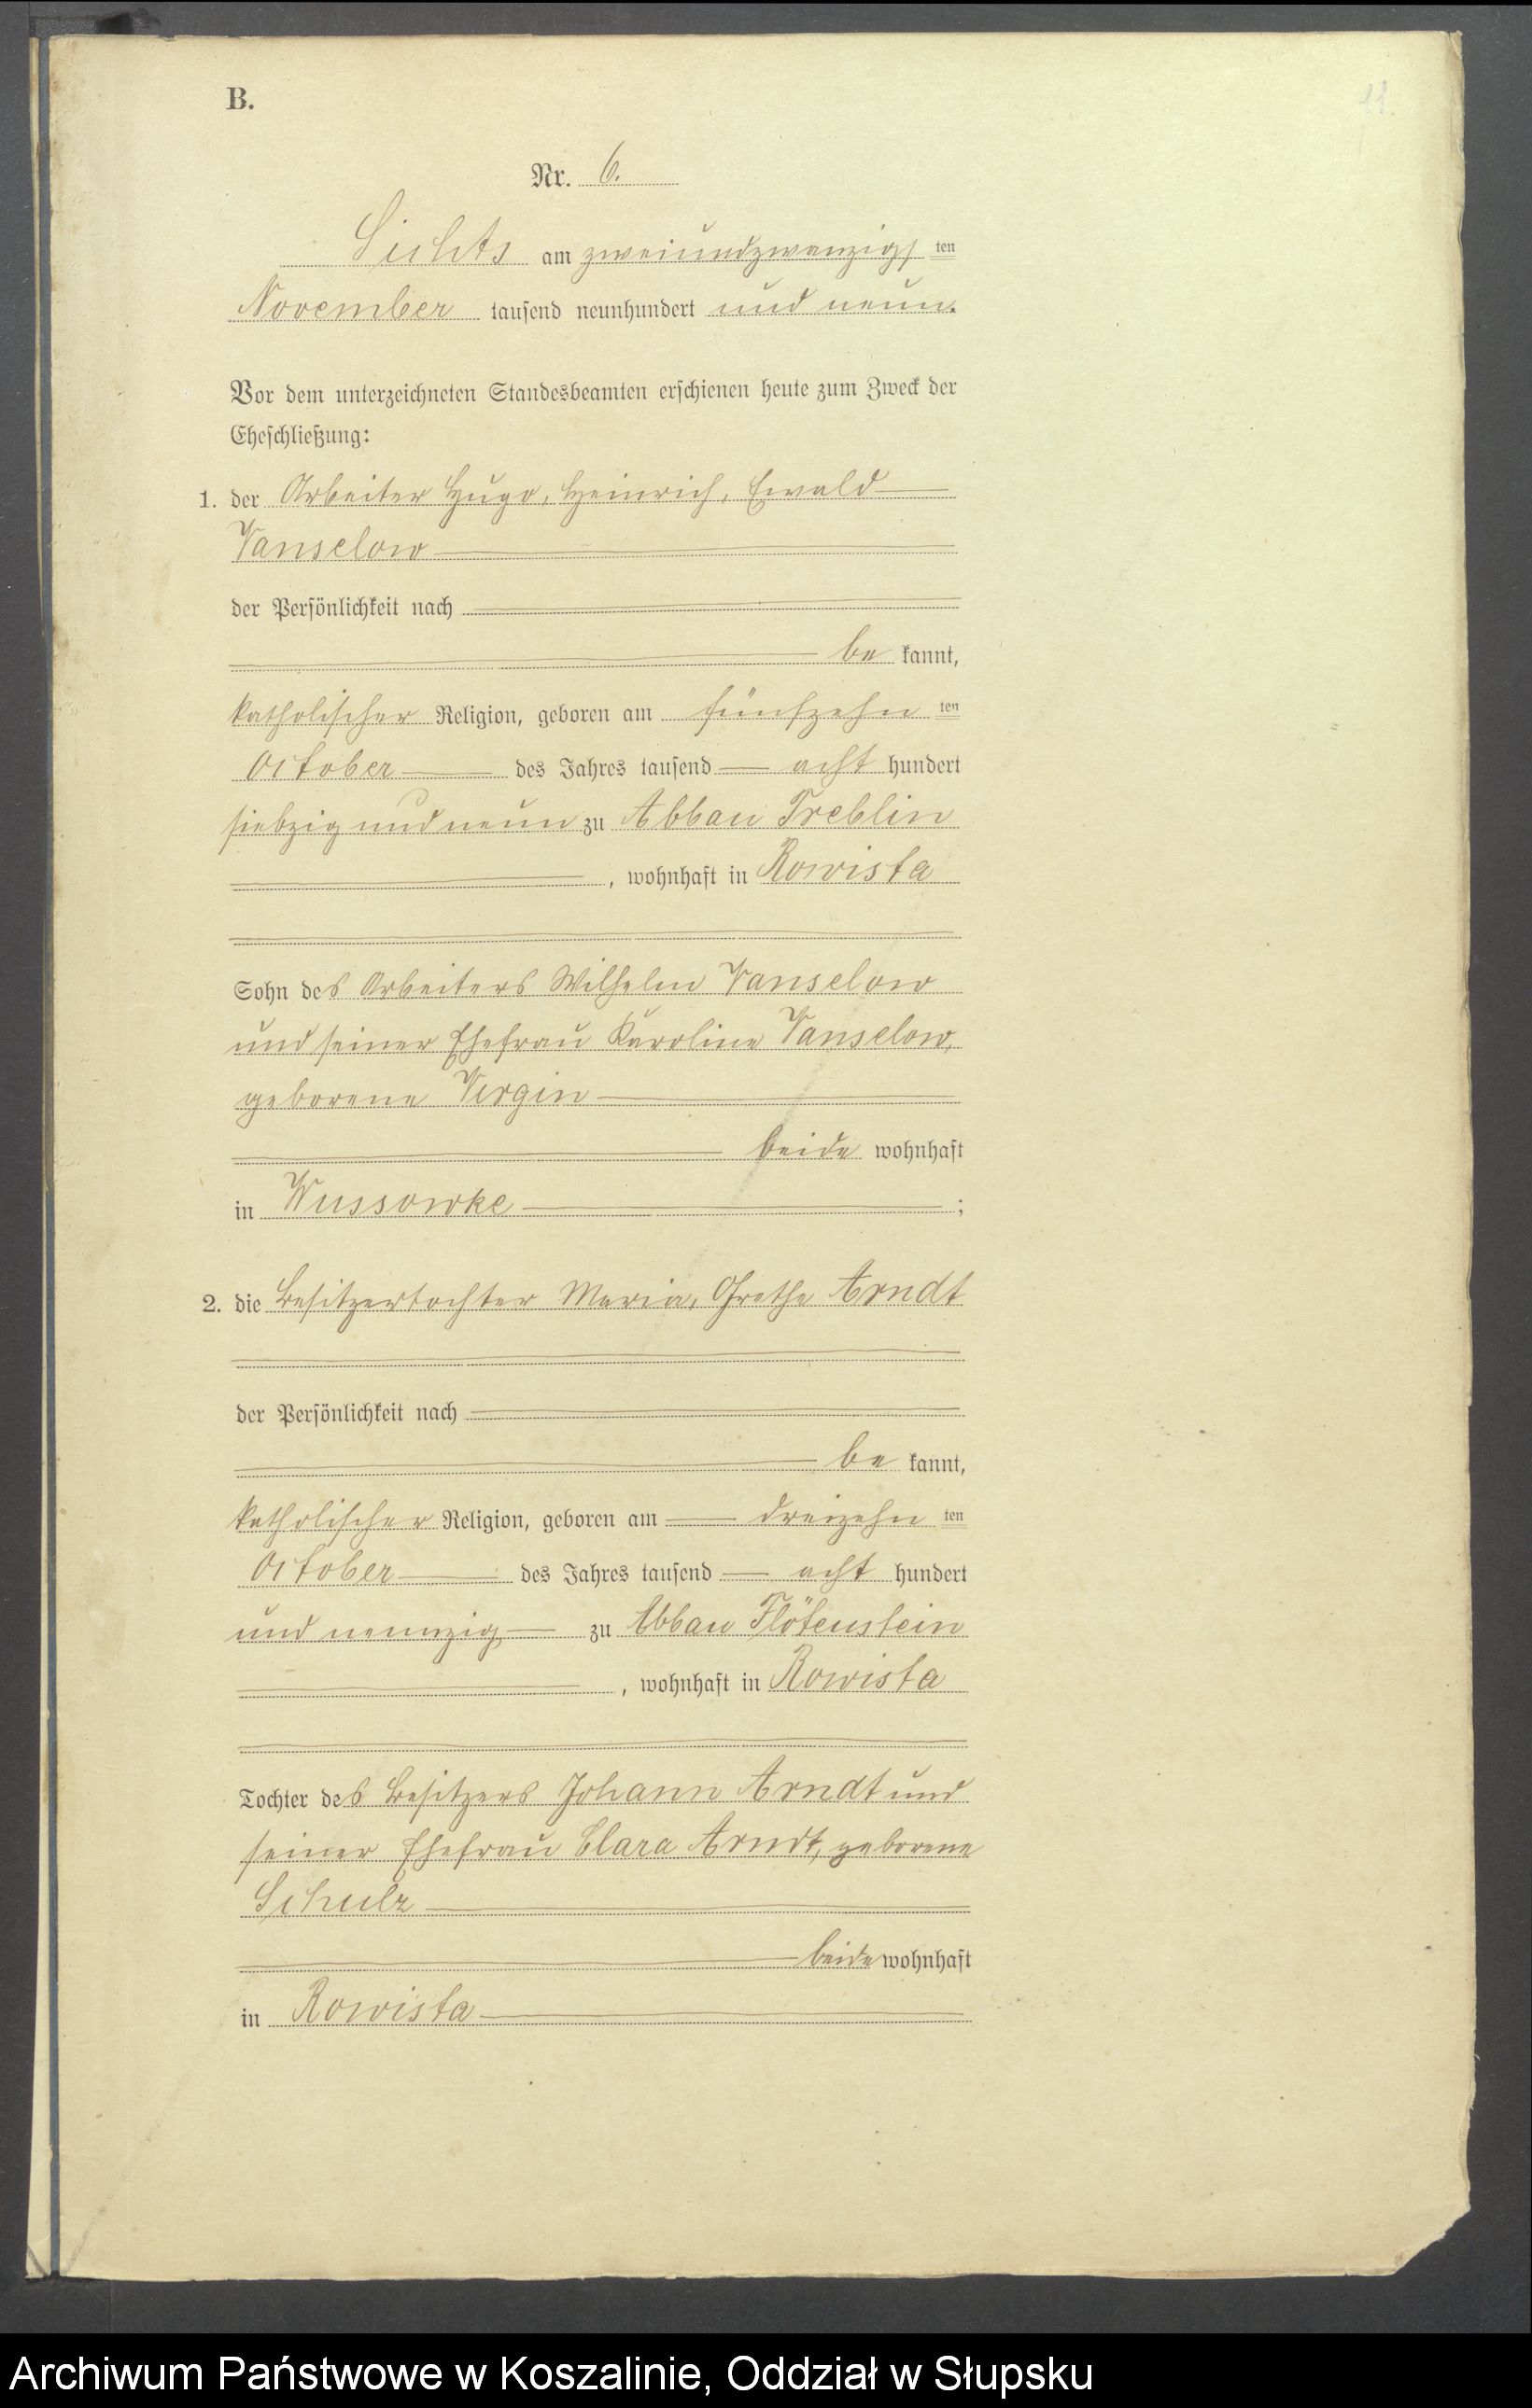 B.
11.
Nr. 6.
Lichts am zweiundzwanzigs ten
November tausend neunhundert und neun.
Vor dem unterzeichneten Standesbeamten erschienen heute zum Zweck der
Eheschließung:
1. der Arbeiter Hugo, Heinrich, Ewald
Vanselow
der Persönlichkeit nach
be kannt,
katholischer Religion, geboren am fünfzehn ten
October des Jahres tausend acht hundert
siebzig und neun zu Abbau Treblin
, wohnhaft in Rowista
Sohn des Arbeiters Wilhelm Vanselow
und seiner Ehefrau Karoline Vanselow,
geborene Virgin
beide wohnhaft
in Wussowke ;
2. die Besitzertochter Maria, Grethe Arndt
der Persönlichkeit nach
be kannt,
katholischer Religion, geboren am dreizehn ten
October des Jahres tausend acht hundert
und neunzig zu Abbau Flötenstein
, wohnhaft in Rowista
Tochter des Besitzers Johann Arndt und
seiner Ehefrau Clara Arndt, geborene
Schulz
beide wohnhaft
in Rowista
Archiwum Państwowe w Koszalinie, Oddział w Słupsku